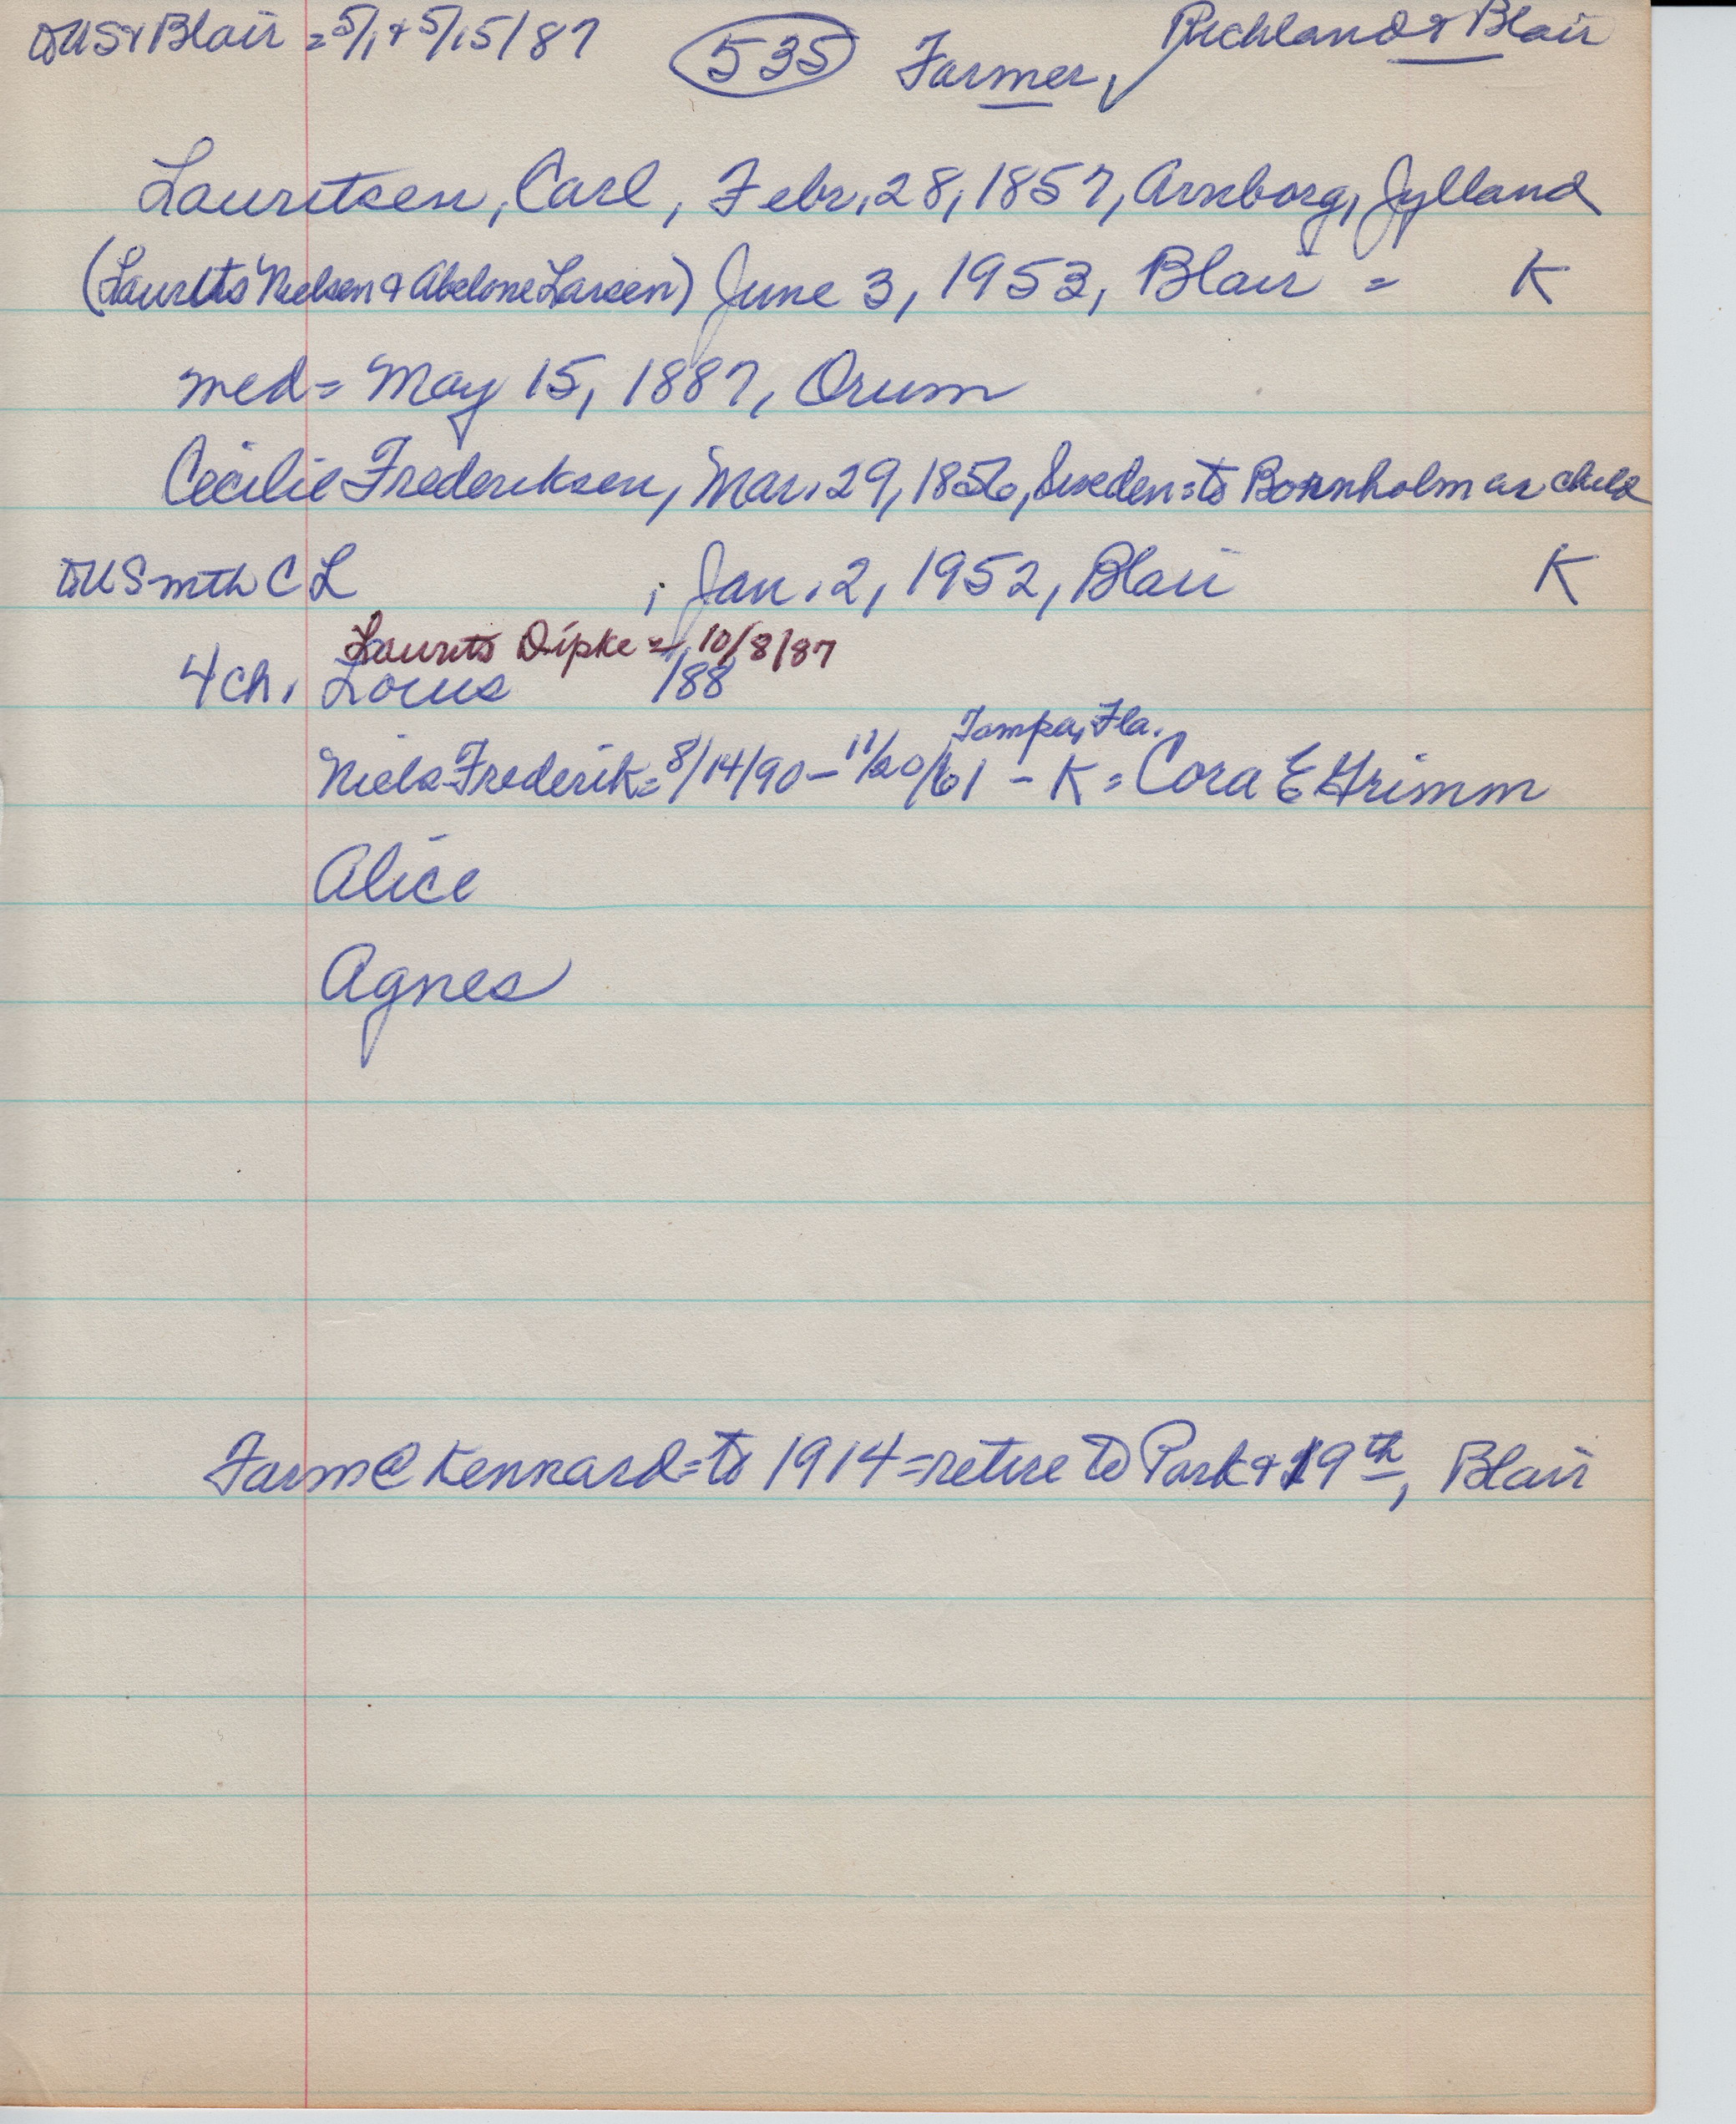 to US & Blair = 5/1 & 5/15/87 (535) Farmer, Richland & Blair
Lauritsen, Carl, Febr. 28, 1857, Arnborg, Jylland
(Laurits Nielsen & Abelone Larsen) June 3, 1953, Blair = K
med = May 15, 1887, Orum
Cecilie Frederiksen, Mar. 29, 1856, Sweden = to Bornholm as child
to US mth CL ; Jan. 2, 1952, Blair K
Laurits Dipke = 10/8/87
4 ch. Louis /88
Tampa, Fla.
Niels Frederik = 8/14/90 - 11/20/61 - K = Cora E Grimm
Alice
Agnes
Farm @ Kennard = to 1914 = retire to Park & 19th, Blair